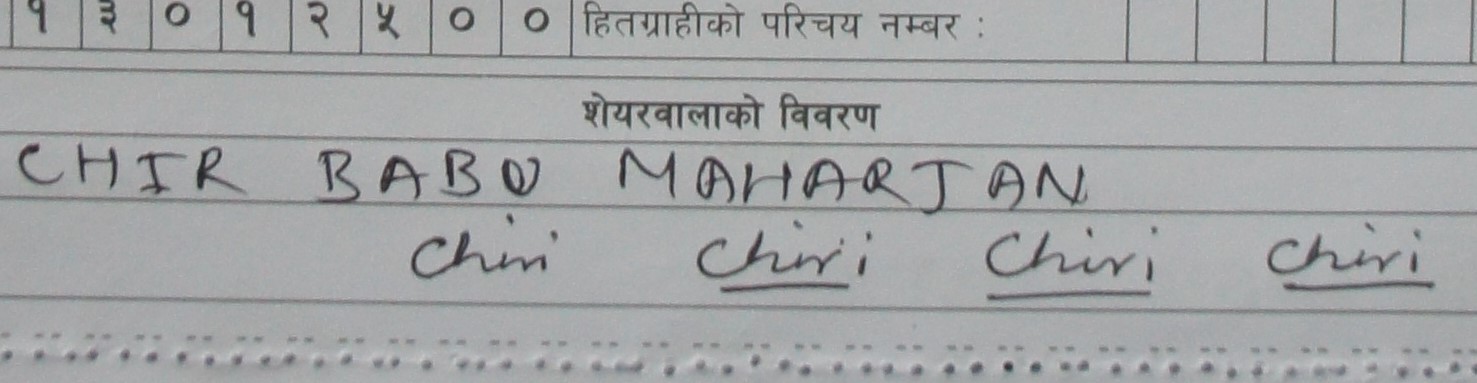 १ ३ ० १ २ ५ ० ० हितग्राहीको परिचय नम्बर :
शेयरवालाको विवरण
CHIR BABU MAHARJAN
Chiri Chiri Chiri Chiri